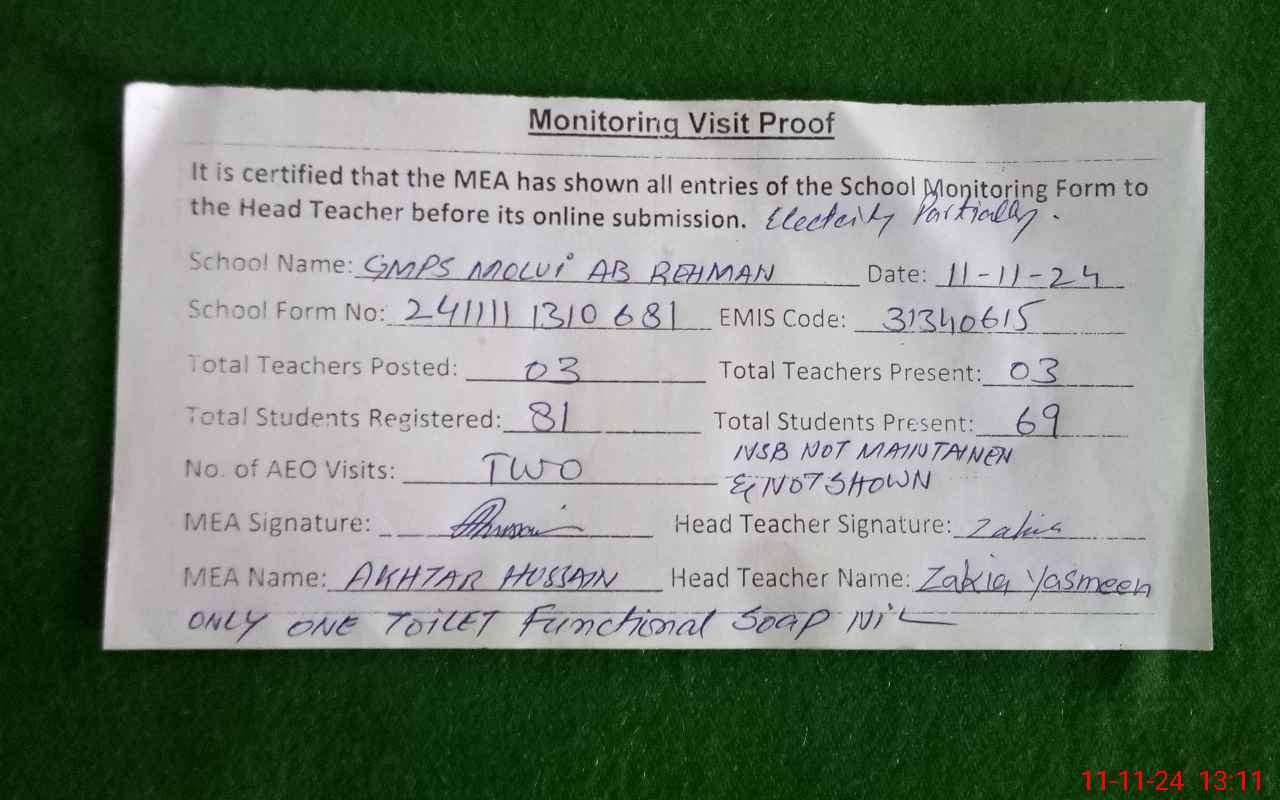 Monitoring Visit Proof
It is certified that the MEA has shown all entries of the School Monitoring Form to
the Head Teacher before its online submission. Electcity Partially.
School Name: GMPS MOLVI AB REHMAN Date: 11-11-24
School Form No: 241111 1310 681 EMIS Code: 31340615
Total Teachers Posted: 03 Total Teachers Present: 03
Total Students Registered: 81 Total Students Present: 69
NSB NOT MAINTAINEN
No. of AEO Visits: TWO & NOT SHOWN
MEA Signature: Head Teacher Signature: Zakia
MEA Name: AKHTAR HUSSAIN Head Teacher Name: Zakia Yasmeen
ONLY ONE TOILET Functional Soap NiL
11-11-24 13:11